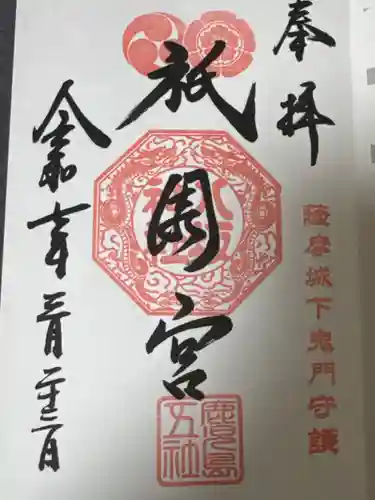 奉拝
薩摩城下鬼門守護
祇園宮
鹿児島五社
令和 年三月二十三日